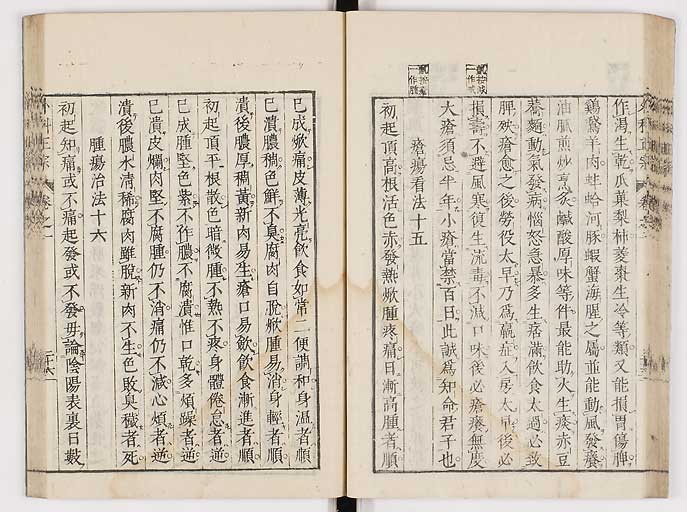 作渴生乾瓜菓梨柿菱棗生冷等類又能損胃傷脾
鷄鵞羊肉蚌蛤河豚蝦蟹海腥之屬並能動風發癢
油膩煎炒烹炙鹹酸厚味等件最能助火生痰赤豆
蕎麵動氣發病惱怒急暴多生痞滿飲食太過必致
脾殃瘡愈之後勞役太早乃為羸症入房太早後必
損壽不避風寒復生流毒不減口味後必瘡癢無度
大瘡須忌半年小瘡當禁百日此誠為知命君子也
瘡瘍看法十五
初起頂高根活色赤發熱焮腫疼痛日漸高腫者順
已成焮痛皮薄光亮飲食如常二便調和身溫者順
已潰膿稠色鮮不臭腐肉自脫焮腫易消身輕者順
潰後膿厚稠黃新肉易生瘡口易斂飲食漸進者順
初起頂平根散色暗微腫不熱不疼身體倦怠者逆
已成腫堅色紫不作膿不腐潰惟口乾多煩躁者逆
已潰皮爛肉堅不腐腫仍不消痛仍不減心煩者逆
潰後膿水清稀腐肉雖脫新肉不生色敗臭穢者死
腫瘍治法十六
初起知痛或不痛起發或不發毋論陰陽表裏日數
外科正宗
卷之一